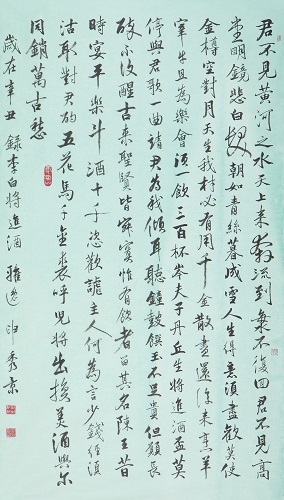 君不見黃河之水天上來奔流到海不復回君不見高
堂明鏡悲白髮朝如青絲暮成雪人生得意須盡歡莫使
金樽空對月天生我材必有用千金散盡還復來烹羊
宰牛且為樂會須一飲三百杯岑夫子丹丘生將進酒盃莫
停與君歌一曲請君為我傾耳聽鐘鼓饌玉不足貴但願長
醉不復醒古來聖賢皆寂寞惟有飲者留其名陳王昔
時宴平樂斗酒十千恣歡謔主人何為言少錢徑須
沽取對君酌五花馬千金裘呼兒將出換美酒與爾
同銷萬古愁
歲在辛丑 錄李白將進酒 雅逸 申秀京